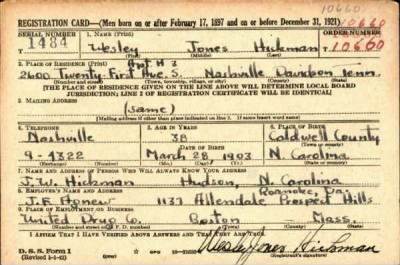 10660
REGISTRATION CARD—(Men born on or after February 17, 1897 and on or before December 31, 1921)
SERIAL NUMBER 1. NAME (Print) ORDER NUMBER
1484 Wesley Jones Hickman 10660
(First) (Middle) (Last)
Apt # 3
2. PLACE OF RESIDENCE (Print)
2600 Twenty-First Ave. S. Nashville Davidson Tenn.
(Number and street) (Town, township, village, or city) (County) (State)
[THE PLACE OF RESIDENCE GIVEN ON THE LINE ABOVE WILL DETERMINE LOCAL BOARD
JURISDICTION; LINE 2 OF REGISTRATION CERTIFICATE WILL BE IDENTICAL]
3. MAILING ADDRESS
(same)
[Mailing address if other than place indicated on line 2. If same insert word same]
4. TELEPHONE 5. AGE IN YEARS 6. PLACE OF BIRTH
Nashville 38 Caldwell County
DATE OF BIRTH
9-4322 March 28, 1903 N. Carolina
7. NAME AND ADDRESS OF PERSON WHO WILL ALWAYS KNOW YOUR ADDRESS
J. W. Hickman Hudson, N. Carolina
8. EMPLOYER'S NAME AND ADDRESS Roanoke, Va.
J. F. Agnew 1137 Allendale Prospect Hills
9. PLACE OF EMPLOYMENT OR BUSINESS
United Drug Co. Boston Mass.
I AFFIRM THAT I HAVE VERIFIED ABOVE ANSWERS AND THAT THEY ARE TRUE.
D. S. S. Form 1 Wesley Jones Hickman
(Revised 1-1-42) (Registrant's signature)